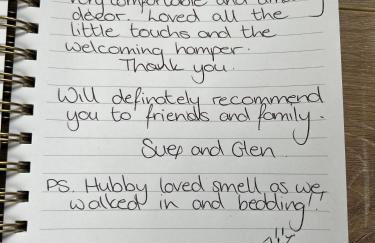 very comfortable and
decor. Loved all the
little touchs and the
welcoming hamper.
Thank you.
Will definately recommend
you to friends and family.
and Glen
PS. Hubby loved smell as we
walked in and bedding!!